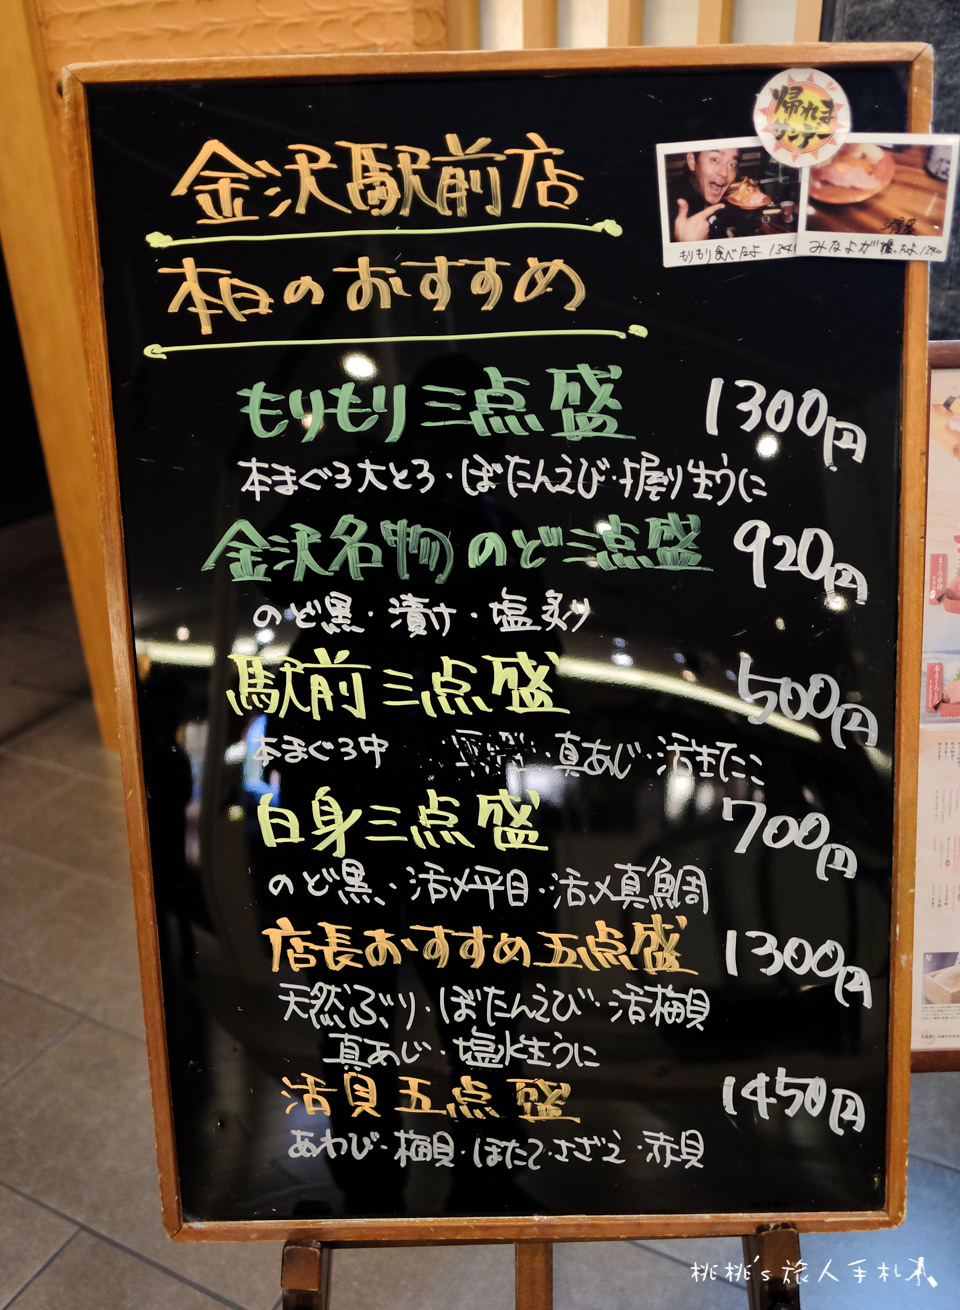 帰れま
サンデー
もりもり食べたよ
みなよが
金沢駅前店
本日のおすすめ
もりもり三点盛 1300円
本まぐろ大とろ・ぼたんえび・握り生うに
金沢名物のど三点盛 920円
のど黒・漬け・塩炙り
駅前三点盛 500円
本まぐろ中 ・真あじ・活生たこ
白身三点盛 700円
のど黒・活〆平目・活〆真鯛
店長おすすめ五点盛 1300円
天然ぶり・ぼたんえび・活梅貝
真あじ・塩水生うに
活貝五点盛 1450円
あわび・梅貝・ほたて・さざえ・赤貝
桃桃's旅人手札